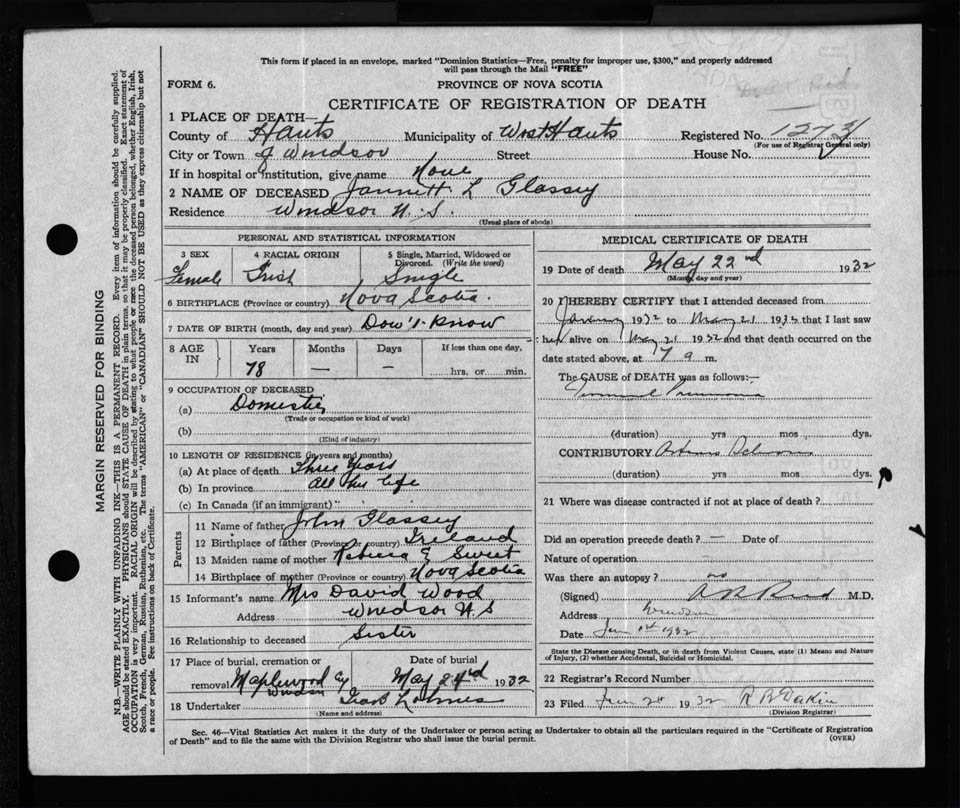 This form if placed in an envelope, marked "Dominion Statistics—Free, penalty for improper use, $300," and properly addressed
will pass through the Mail "FREE"
FORM 6.
PROVINCE OF NOVA SCOTIA
CERTIFICATE OF REGISTRATION OF DEATH
1 PLACE OF DEATH—
County of Hants Municipality of West Hants Registered No. 1273
(For use of Registrar General only)
City or Town of Windsor Street House No.
If in hospital or institution, give name None
2 NAME OF DECEASED Jannett L Glassey
Residence Windsor N.S.
(Usual place of abode)
PERSONAL AND STATISTICAL INFORMATION
3 SEX 4 RACIAL ORIGIN 5 Single, Married, Widowed or Divorced. (Write the word)
Female Irish Single
6 BIRTHPLACE (Province or country) Nova Scotia.
7 DATE OF BIRTH (month, day and year) Don't Know
8 AGE IN Years Months Days If less than one day,
78 — — hrs. or min.
9 OCCUPATION OF DECEASED
(a) Domestic
(Trade or occupation or kind of work)
(b)
(Kind of industry)
10 LENGTH OF RESIDENCE (in years and months)
(a) At place of death Three Years
(b) In province All her life
(c) In Canada (if an immigrant)
Parents
11 Name of father John Glassey
12 Birthplace of father (Province or country) Ireland
13 Maiden name of mother Rebecca E Sweet
14 Birthplace of mother (Province or country) Nova Scotia
15 Informant's name Mrs David Wood
Address Windsor N.S
16 Relationship to deceased Sister
17 Place of burial, cremation or removal Maplewood Cy Windsor
Date of burial May 24rd 1932
18 Undertaker
(Name and address)
MEDICAL CERTIFICATE OF DEATH
19 Date of death May 22nd 1932
(Month, day and year)
20 I HEREBY CERTIFY that I attended deceased from
January 1932 to May 21 1932 that I last saw
her alive on May 21 1932 and that death occurred on the
date stated above, at 7 a m.
The CAUSE of DEATH was as follows:—
Pneumonia
(duration) yrs mos dys.
CONTRIBUTORY
(duration) yrs. mos. dys.
21 Where was disease contracted if not at place of death?
Did an operation precede death? — Date of
Nature of operation
Was there an autopsy? no
(Signed) Reid M.D.
Address Windsor
Date June 1st 1932
State the Disease causing Death, or in death from Violent Causes, state (1) Means and Nature
of Injury, (2) whether Accidental, Suicidal or Homicidal.
22 Registrar's Record Number
23 Filed June 1932 R B Dakin
(Division Registrar)
Sec. 46—Vital Statistics Act makes it the duty of the Undertaker or person acting as Undertaker to obtain all the particulars required in the "Certificate of Registration
of Death" and to file the same with the Division Registrar who shall issue the burial permit.
(OVER)
MARGIN RESERVED FOR BINDING
N.B.—WRITE PLAINLY WITH UNFADING INK—THIS IS A PERMANENT RECORD. Every item of information should be carefully supplied.
AGE should be stated EXACTLY. PHYSICIANS should STATE CAUSE OF DEATH in plain terms, so that it may be properly classified. Exact statement of
OCCUPATION is very important. RACIAL ORIGIN will be described by stating to what people or race the deceased person belonged, whether English, Irish,
Scotch, French, German, Russian, Ruthenian, etc. The terms "AMERICAN" or "CANADIAN" SHOULD NOT BE USED as they express citizenship but not
a race or people. See instructions on back of Certificate.